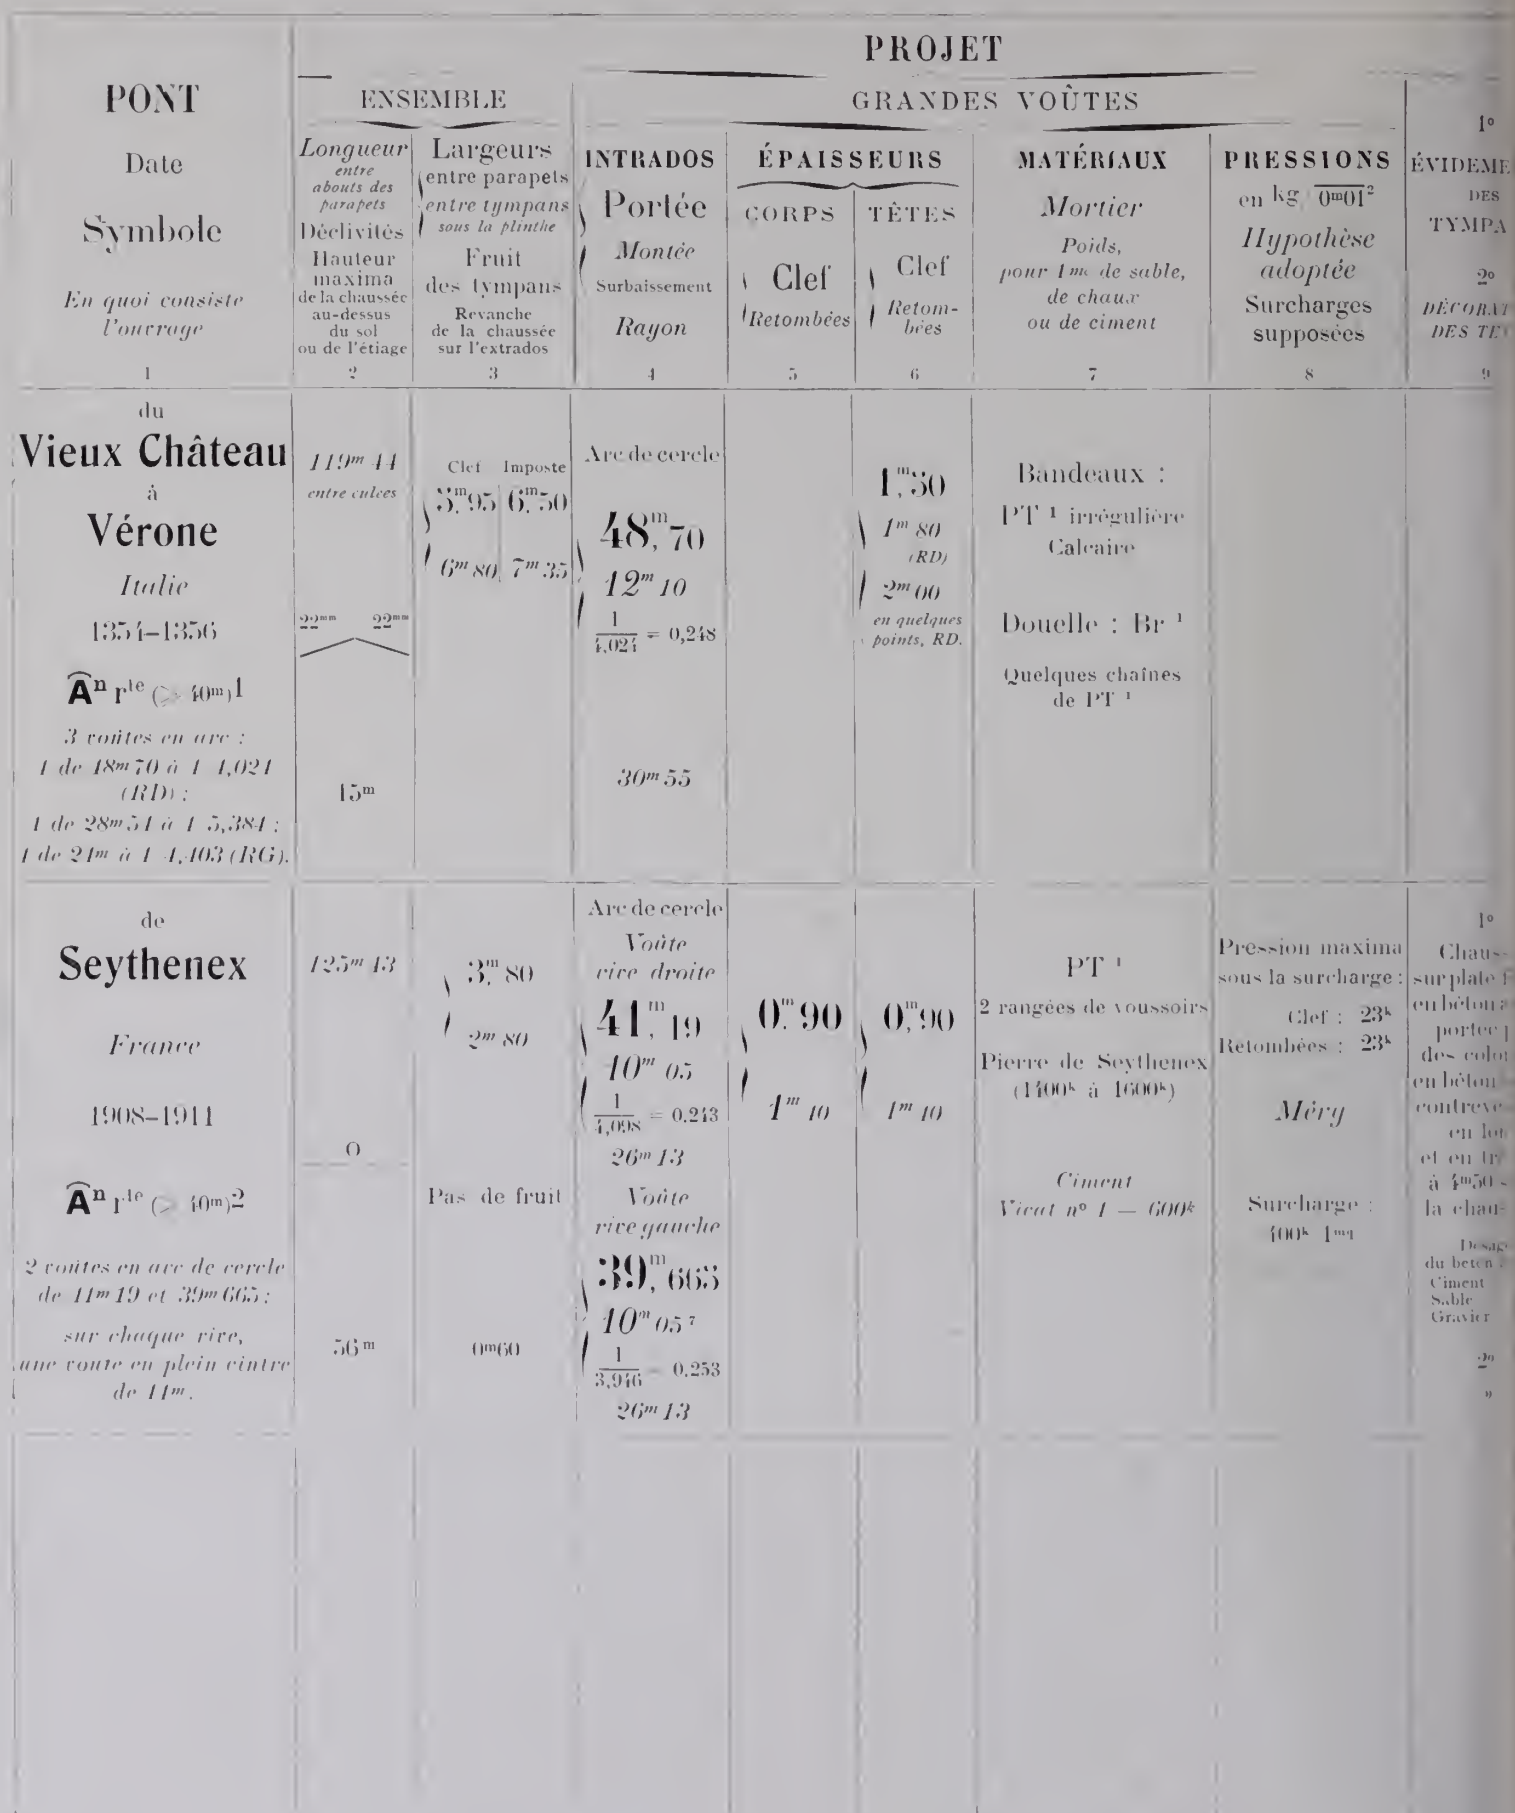 PROJET
PONT
Date
Symbole
En quoi consiste
l'ouvrage
1
ENSEMBLE
Longueur
entre
abouts des
parapets
Déclivités
Hauteur
maxima
de la chaussée
au-dessus
du sol
ou de l'étiage
2
Largeurs
entre parapets
entre tympans
sous la plinthe
Fruit
des tympans
Revanche
de la chaussée
sur l'extrados
3
GRANDES VOÛTES
INTRADOS
Portée
Montée
Surbaissement
Rayon
4
ÉPAISSEURS
CORPS
Clef
Retombées
5
TÊTES
Clef
Retom-
bées
6
MATÉRIAUX
Mortier
Poids,
pour 1mc de sable,
de chaux
ou de ciment
7
PRESSIONS
en kg 0m01²
Hypothèse
adoptée
Surcharges
supposées
8
1º
ÉVIDEME
DES
TYMPA
2º
DÉCORAT
DES TE
9
du
Vieux Château
à
Vérone
Italie
1354–1356
Ân rte (> 40m)1
3 voûtes en arc :
1 de 48m70 à 1 4,024
(RD) ;
1 de 28m54 à 1 5,384 ;
1 de 24m à 1 4,403 (RG).
119m 44
entre culées
22mm 22mm
15m
Clef Imposte
5m,95 6m,50
6m 80 7m 35
Arc de cercle
48m,70
12m 10
1/4,024 = 0,248
30m 55
1m,50
1m 80
(RD)
2m 00
en quelques
points, RD.
Bandeaux :
PT ¹ irrégulière
Calcaire
Douelle : Br ¹
Quelques chaînes
de PT ¹
de
Seythenex
France
1908–1911
Ân rte (> 40m)2
2 voûtes en arc de cercle
de 41m19 et 39m665 ;
sur chaque rive,
une voute en plein cintre
de 11m.
125m 43
0
56m
3m,80
2m 80
Pas de fruit
0m60
Arc de cercle
Voûte
rive droite
41m,19
10m 05
1/4,098 = 0,243
26m 13
Voûte
rive gauche
39m,665
10m 05 7
1/3,946 = 0,253
26m 13
0m,90
1m 10
0m,90
1m 10
PT ¹
2 rangées de voussoirs
Pierre de Seythenex
(1400k à 1600k)
Ciment
Vicat nº 1 — 600k
Pression maxima
sous la surcharge :
Clef : 23k
Retombées : 23k
Méry
Surcharge :
400k 1mq
1º
Chaus-
sur plate f
en béton a
portée p
des color
en béton
contreve
en lon
et en tr
à 4m50
la chaus
Dosage
du béton :
Ciment
Sable
Gravier
2º
"